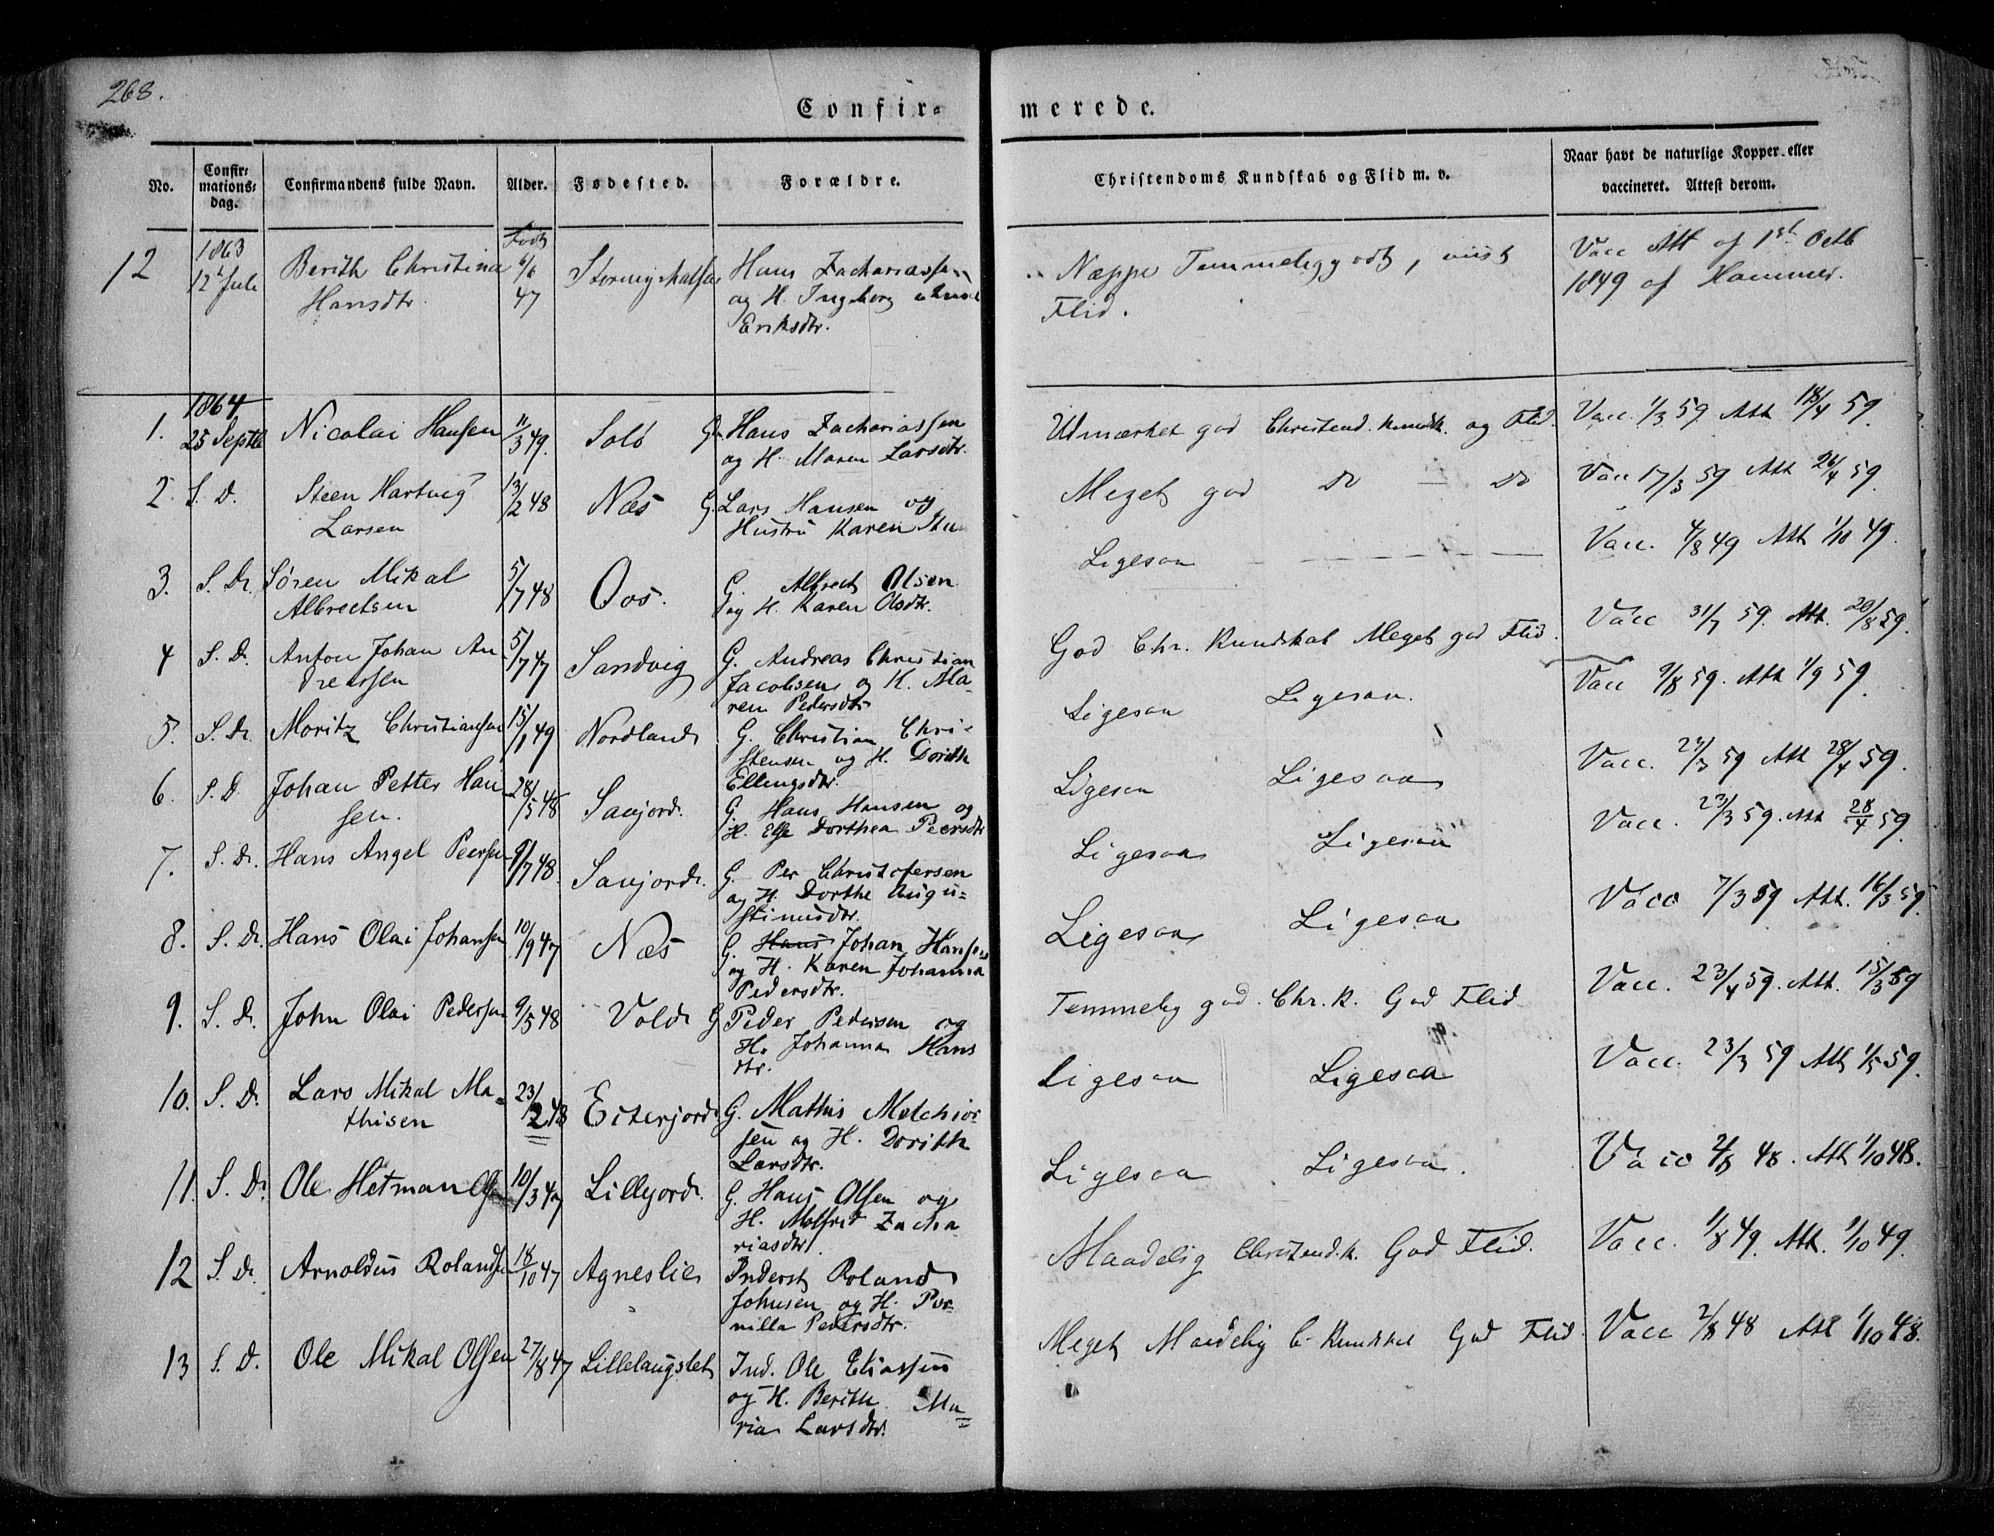 268.
Confir- merede.
No. Confir-mations-dag. Confirmandens fulde Navn. Alder. Fødested. Forældre. Christendoms Kundskab og Flid m. v. Naar havt de naturlige Kopper eller vaccineret. Attest derom.
Født
12 1863 12 Juli Berith Christina Hansdtr. 6/6 47 Hans Zachariassen og H. Ingeborg Eriksdtr. Næppe Temmeligodt, Flid. Vacc Att af 1st Octb 1849 af Hammer.
1864
1. 25 Septb Nicolai Hansen 11/3 49. Solö G. Hans Zachariassen og H. Maren Larsdtr. Udmærket god Christend. Kundsk. og Flid. Vacc. 1/3 59 Att 18/4 59.
2. S. D. Steen Hartvig Larsen 13/2 48 Næs G. Lars Hansen og Hustru Karen Meget god Do — Do Vacc 17/3 59 Att 26/4 59.
3. S. D. Søren Mikal Albrectsen 5/7 48 Oos. G. Albrect Olsen og H. Karen Olsdtr. Ligesaa - - - Vacc. 4/8 49 Att 1/10 49.
4 S. D. Anton Johan Andreassen 5/7 47 Sandvig G. Andreas Christian Jacobsen og H. Maren Pedersdtr God Chr. Kundskab Meget god Flid. Vacc 31/7 59. Att. 20/8 59.
5. S. D. Moritz Christiansen 15/1 49 Nordland G. Christian Christensen og H. Dorith Ellingsdtr. Ligesaa Ligesaa. Vacc 9/8 59. Att 1/9 59.
6. S. D. Johan Petter Hansen. 28/5 48 Sanjord. G. Hans Hansen og H. Else Dorthea Peersdtr Ligesaa Ligesaa Vacc. 23/3 59 Att 28/4 59.
7. S. D. Hans Angel Peersen 9/7 48. Sanjord. G. Per Christofersen og H. Dorthe Augustinusdtr. Ligesaa Ligesaa Vacc. 23/3 59. Att 28/4 59.
8. S. D. Hans Olai Johansen 10/9 47 Næs G. Hans Johan Hansen og H. Karen Johanna Pedersdtr. Ligesaa Ligesaa Vacc 7/3 59 Att. 16/3 59.
9. S. D. John Olai Pedersen 9/5 48 Vold G Peder Pedersen og H. Johanna Hansdtr. Temmelig god Chr. K. God Flid Vacc. 23/4 59. Att. 15/3 59
10. S. D. Lars Mikal Mathisen 23/12 48 Eiterjord G. Mathis Melchiorsen og H. Dorith Larsdtr. Ligesaa Ligesaa Vacc. 23/3 59 Att 1/5 59.
11. S. D. Ole Hetman Olsen 10/3 47 Lillejord. G. Hans Olsen og H. Malfrid Zachariasdtr. Ligesaa Ligesaa. Vacc 2/8 48. Att 1/10 48.
12 S. D. Arnoldus Rolandsen 18/10 47 Agneslie Inderst Roland Johnsen og H. Pernilla Pedersdtr. Maadelig Christend. k. God Flid. Vacc. 1/8 49. Att. 1/10 49.
13 S. D. Ole Mikal Olsen 27/8 47 Lillelangslet Ind. Ole Eliassen og H. Berith Maria Larsdtr. Meget Maadelig C. Kundskab God Flid. Vacc 2/8 48 Att 1/10 48.